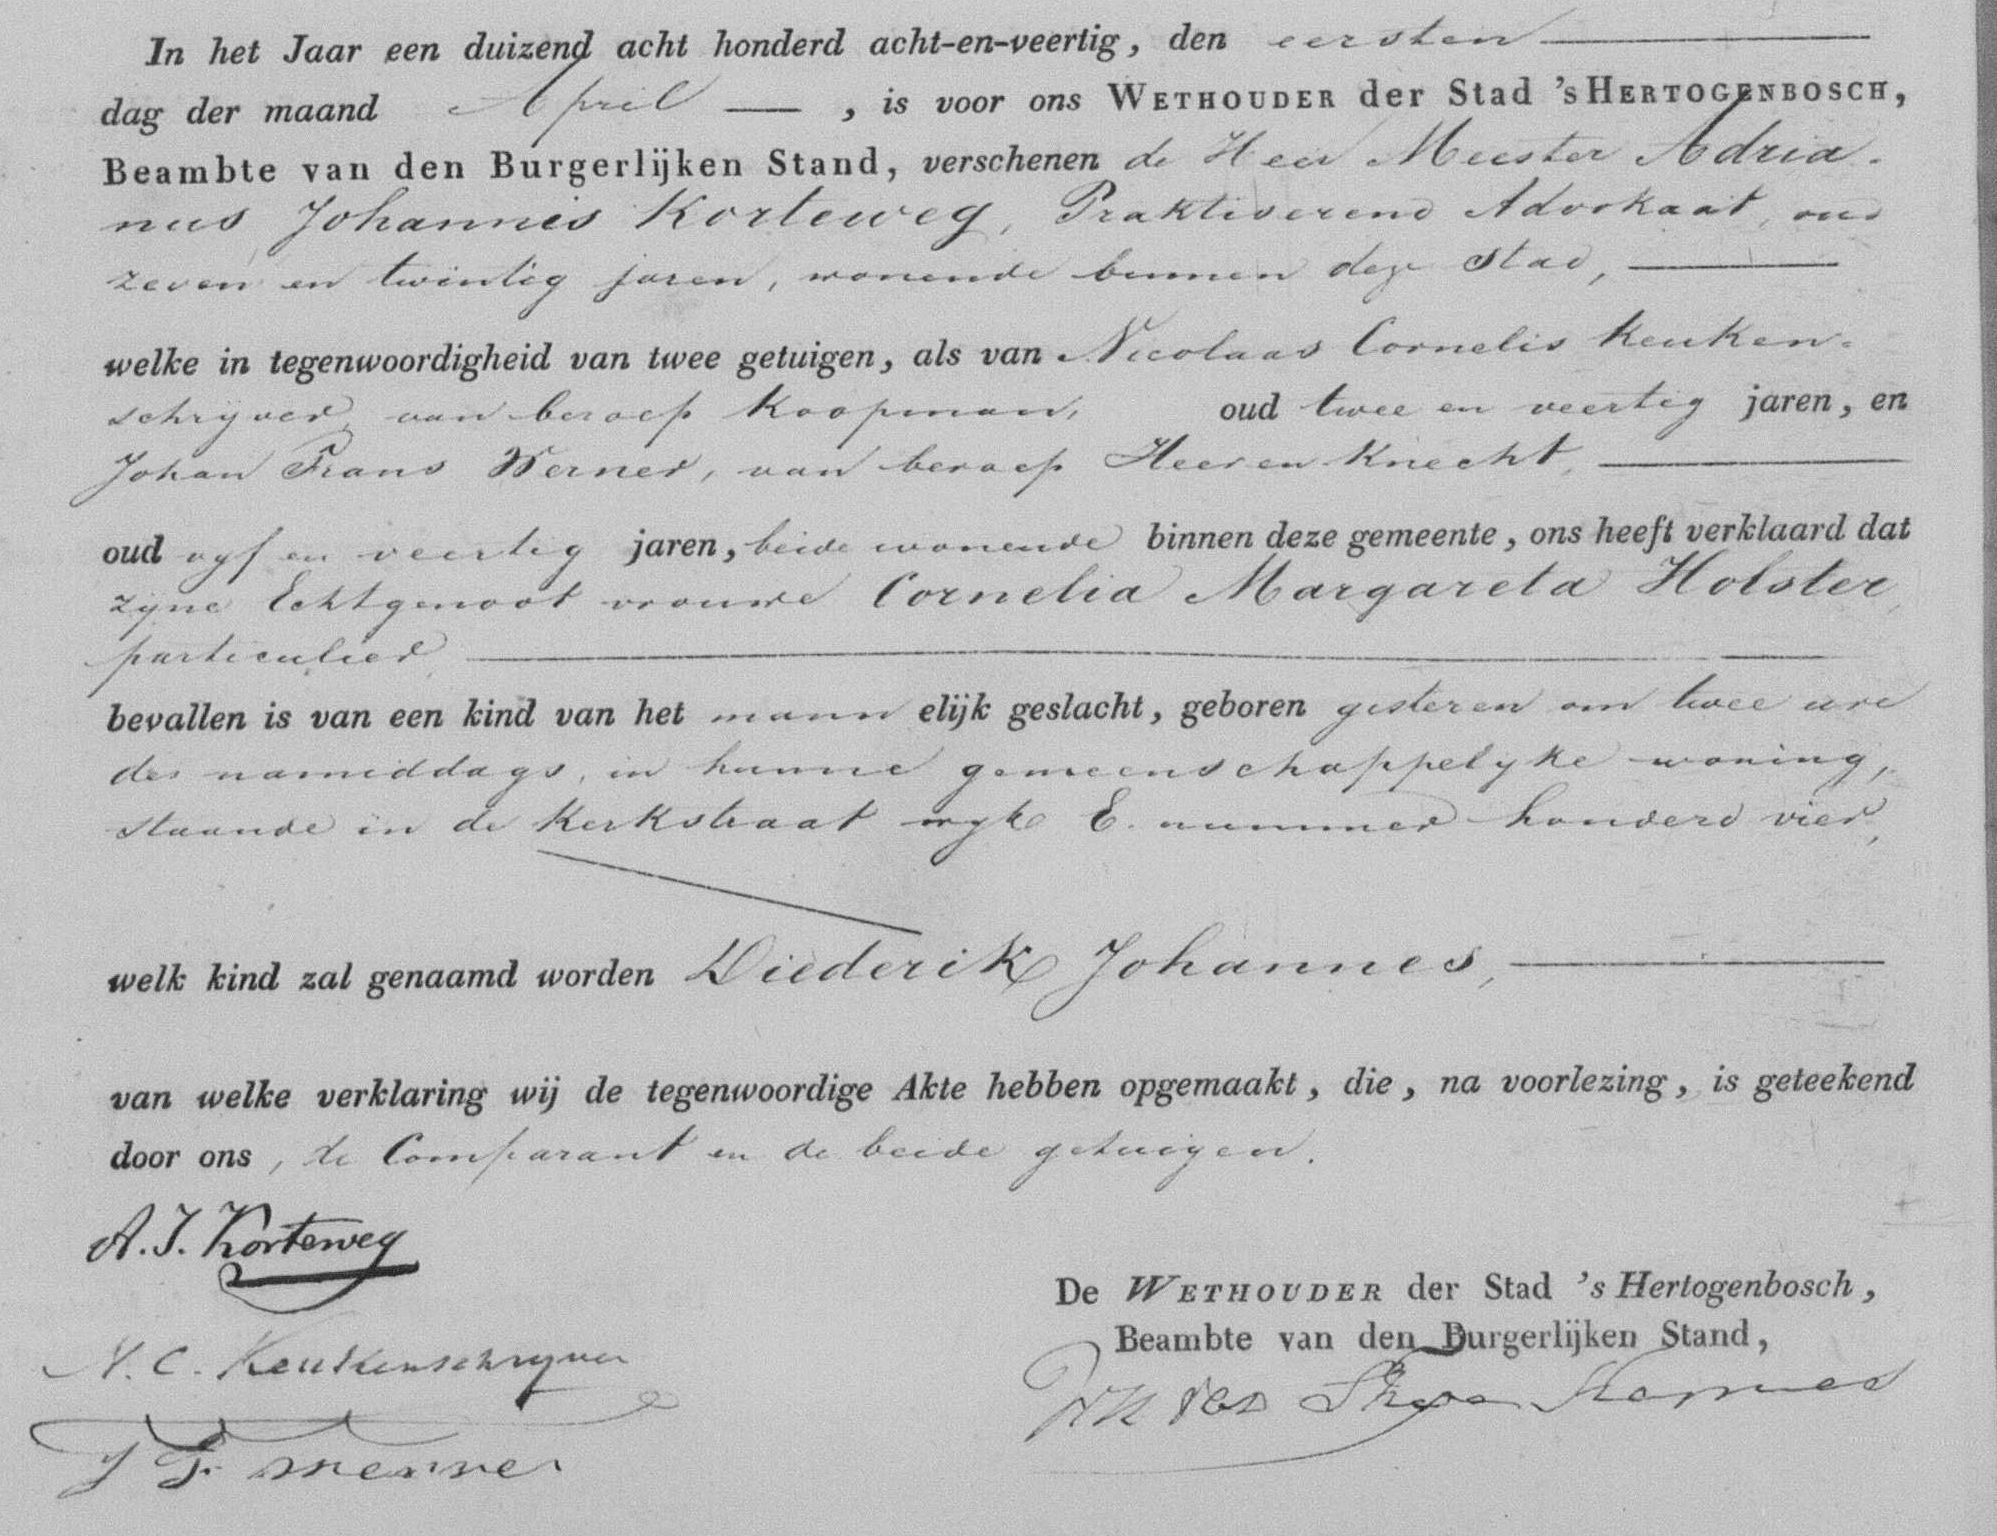 In het Jaar een duizend acht honderd acht-en-veertig, den eersten
dag der maand April, is voor ons WETHOUDER der Stad 'sHERTOGENBOSCH,
Beambte van den Burgerlijken Stand, verschenen de Heer Meester Adria-
nus Johannes Korteweg, Praktiserend Advokaat, oud
zeven en twintig jaren, wonende binnen deze Stad,
welke in tegenwoordigheid van twee getuigen, als van Nicolaas Cornelis Keuken-
schryver, van beroep Koopman, oud twee en veertig jaren, en
Johan Frans Werner, van beroep Heeren Knecht,
oud vyf en veertig jaren, beide wonende binnen deze gemeente, ons heeft verklaard dat
zyne Echtgenoot vrouwe Cornelia Margareta Holster,
particulier
bevallen is van een kind van het mannelijk geslacht, geboren gisteren om twee ure
des namiddags, in hunne gemeenschappelyke woning,
staande in de Kerkstraat wyk E. nummer honderd vier,
welk kind zal genaamd worden Diederik Johannes,
van welke verklaring wij de tegenwoordige Akte hebben opgemaakt, die, na voorlezing, is geteekend
door ons, de Comparant en de beide getuigen.
A. J. Korteweg
De WETHOUDER der Stad 's Hertogenbosch,
Beambte van den Burgerlijken Stand,
N. C. Keukenschryver
J F Werner